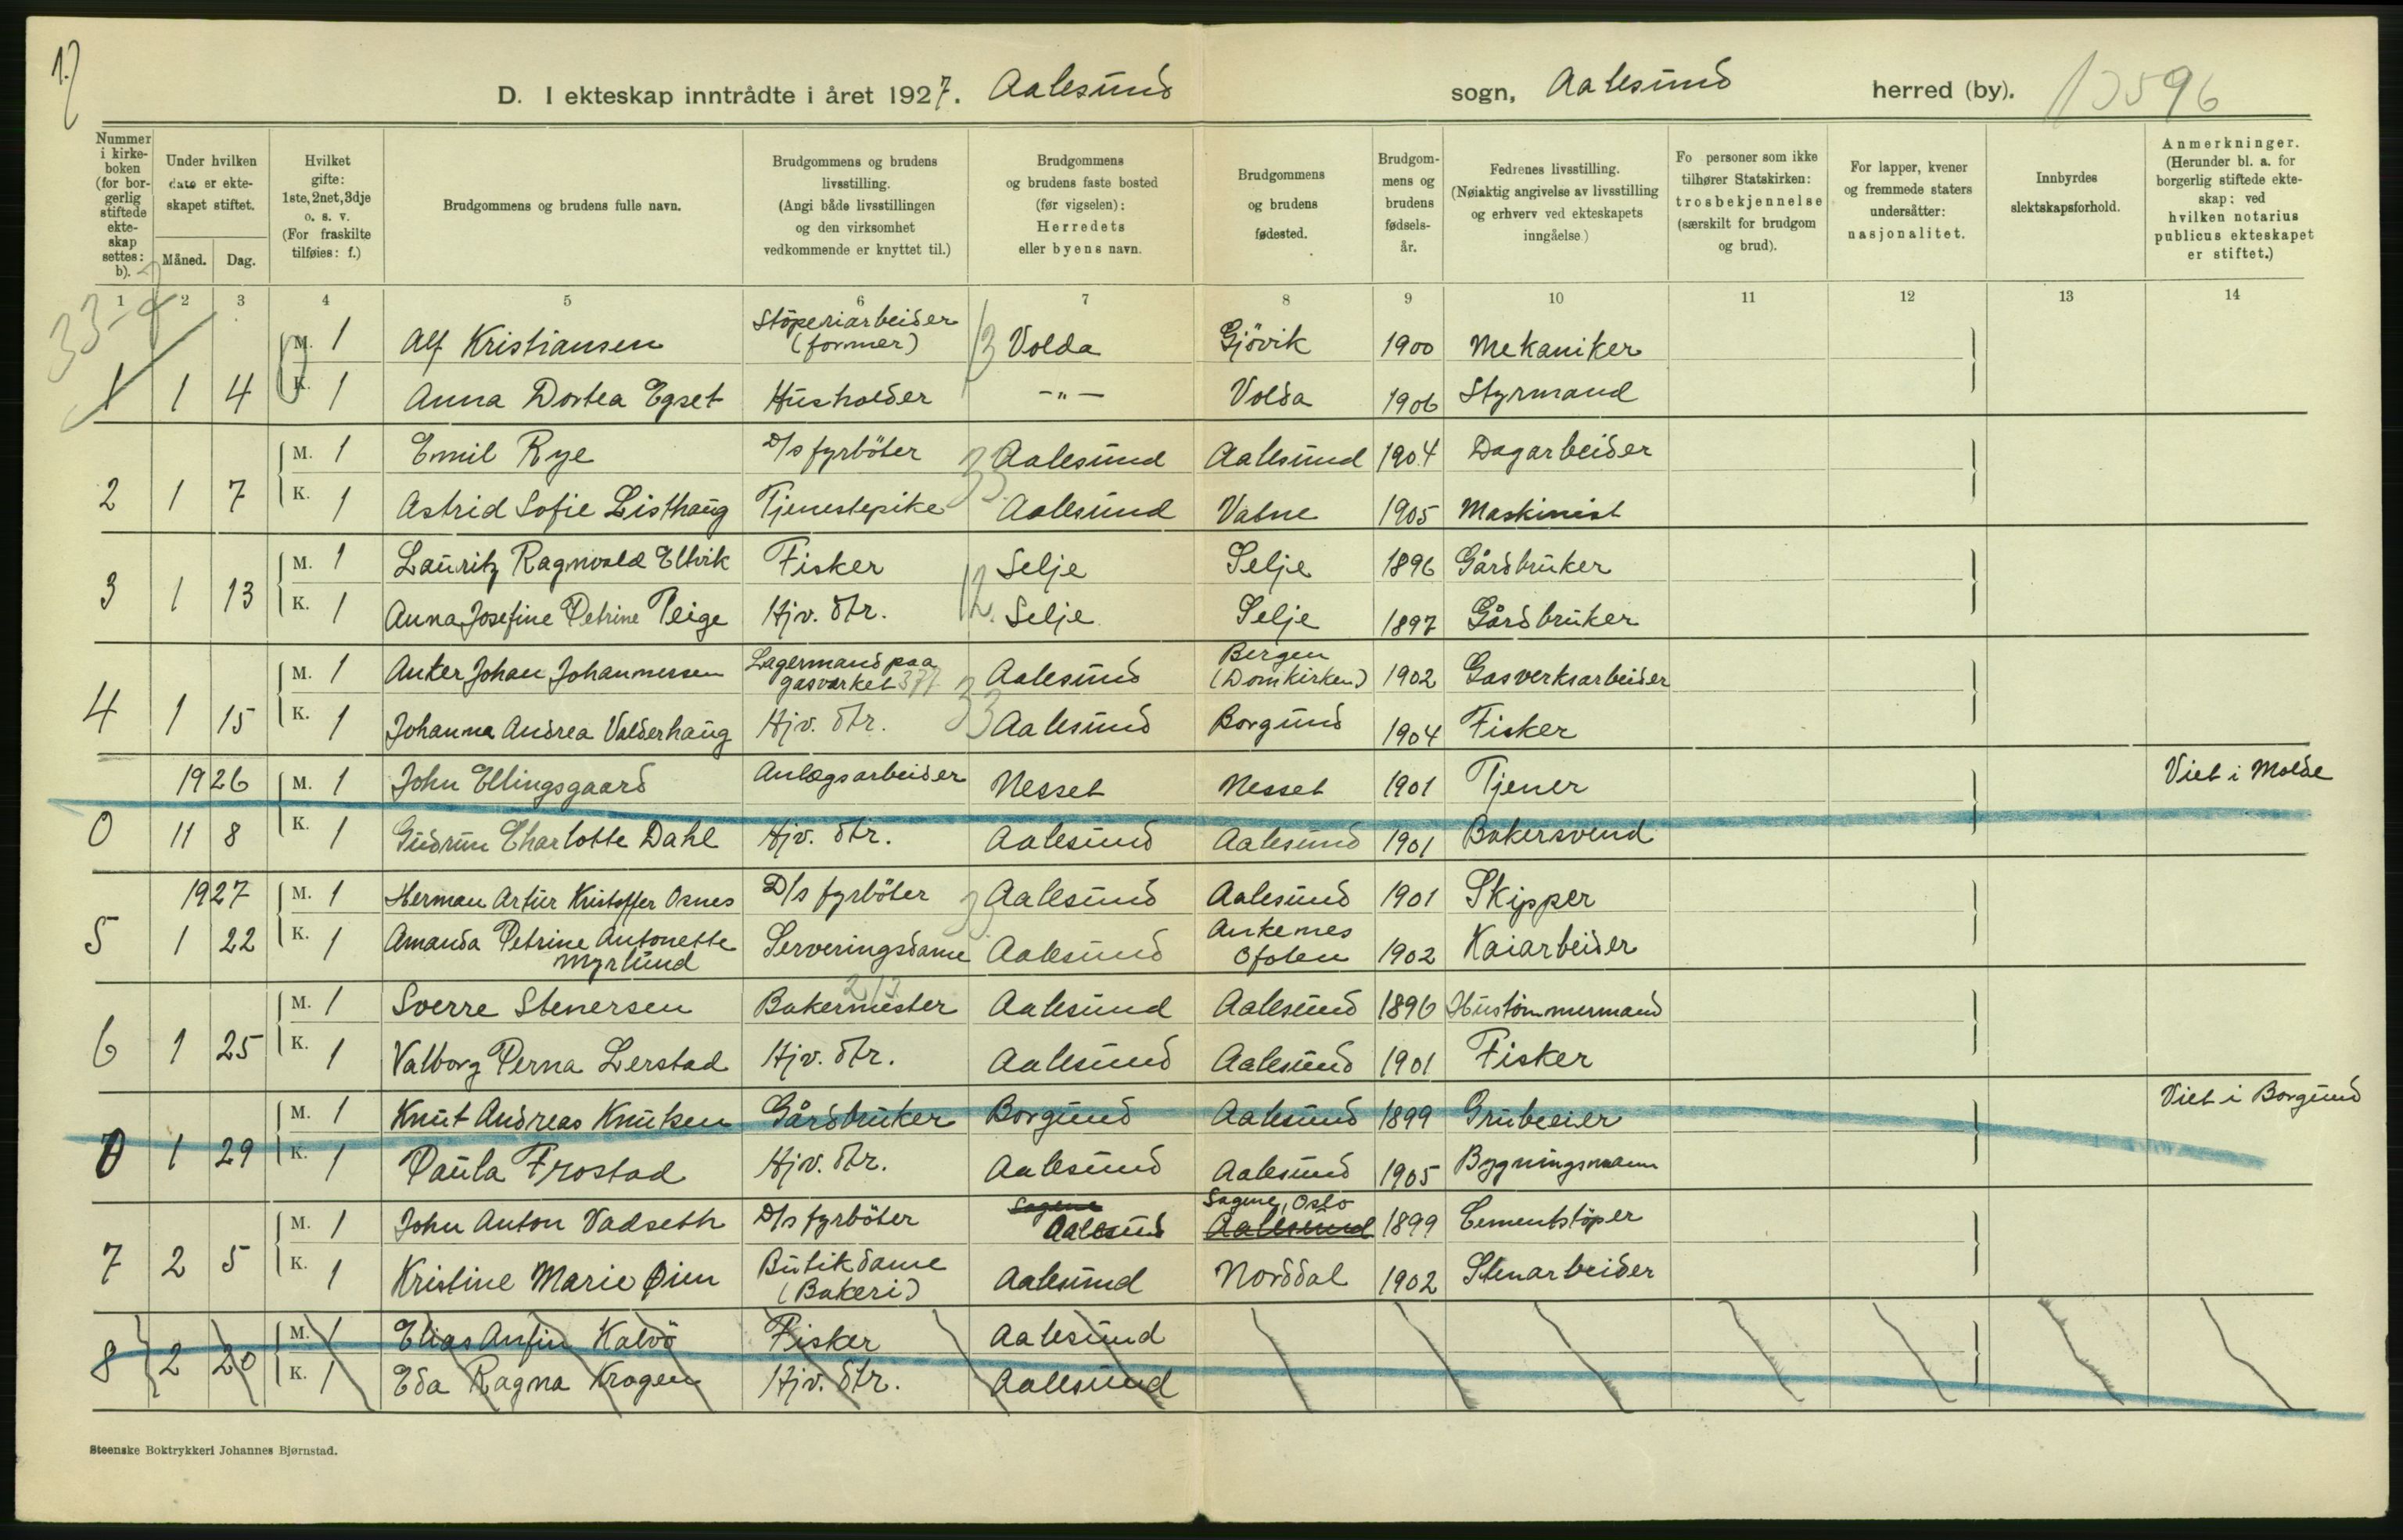 D. I ekteskap inntrådte i året 1927. Aalesund sogn, Aalesund herred (by).
Nummer i kirkeboken (for borgerlig stiftede ekteskap settes: b).
Under hvilken dato er ekteskapet stiftet.
Måned. Dag.
Hvilket gifte: 1ste, 2net, 3dje o. s. v. (For fraskilte tilføies: f.)
Brudgommens og brudens fulle navn.
Brudgommens og brudens livsstilling. (Angi både livsstillingen og den virksomhet vedkommende er knyttet til.)
Brudgommens og brudens faste bosted (før vigselen): Herredets eller byens navn.
Brudgommens og brudens fødested.
Brudgommens og brudens fødselsår.
Fedrenes livsstilling. (Nøiaktig angivelse av livsstilling og erhverv ved ekteskapets inngåelse)
Fo personer som ikke tilhører Statskirken: trosbekjennelse (særskilt for brudgom og brud).
For lapper, kvener og fremmede staters undersåtter: nasjonalitet.
Innbyrdes slektskapsforhold.
Anmerkninger. (Herunder bl. a. for borgerlig stiftede ekteskap: ved hvilken notarius publicus ekteskapet er stiftet.)
1 2 3 4 5 6 7 8 9 10 11 12 13 14
M. 1 Alf Kristiansen Støperiarbeider (former) Volda Gjövik 1900 Mekaniker
1 1 4 K. 1 Anna Dortea Egset Husholder -"- Volda 1906 Styrmand
M. 1 Emil Rye D/s fyrböter Aalesund Aalesund 1904 Dagarbeider
2 1 7 K. 1 Astrid Sofie Listhaug Tjenestepike Aalesund Vatne 1905 Maskinist
M. 1 Lauritz Ragnvald Eltvik Fisker Selje Selje 1896 Gårdbruker
3 1 13 K. 1 Anna Josefine Petrine Teige Hjv. dtr. Selje Selje 1897 Gårdbruker
M. 1 Anker Johan Johannessen Lagermand paa gasværket 377 Aalesund Bergen (Domkirken) 1902 Gasverksarbeider
4 1 15 K. 1 Johanna Andrea Valderhaug Hjv. dtr. Aalesund Borgund 1904 Fisker
1926 M. 1 John Ellingsgaard Anlægsarbeider Nesset Nesset 1901 Tjener Viet i Molde
0 11 8 K. 1 Gudrun Charlotte Dahl Hjv. dtr. Aalesund Aalesund 1901 Bakersvend
1927 M. 1 Herman Artur Kristoffer Osnes D/s fyrböter Aalesund Aalesund 1901 Skipper
5 1 22 K. 1 Amanda Petrine Antonette Myrlund Serveringsdame Aalesund Ankenes Ofoten 1902 Kaiarbeider
M. 1 Sverre Stenersen Bakermester Aalesund Aalesund 1896 Hustømmermand
6 1 25 K. 1 Valborg Perna Lerstad Hjv. dtr. Aalesund Aalesund 1901 Fisker
M. 1 Knut Andreas Knutsen Gårdbruker Borgund Aalesund 1899 Grubeeier Viet i Borgund
0 1 29 K. 1 Paula Frostad Hjv. dtr. Aalesund Aalesund 1905 Bygningsmann
M. 1 John Anton Vadseth D/s fyrböter Sagene Aalesund Sagene, Oslo Aalesund 1899 Cementstøper
7 2 5 K. 1 Kristine Marie Øien Butikdame (Bakeri) Aalesund Norddal 1902 Stenarbeider
M. 1 Elias Anfin Kalvö Fisker Aalesund
8 2 20 K. 1 Eda Ragna Krogen Hjv. dtr. Aalesund
Steenske Boktrykkeri Johannes Bjørnstad.